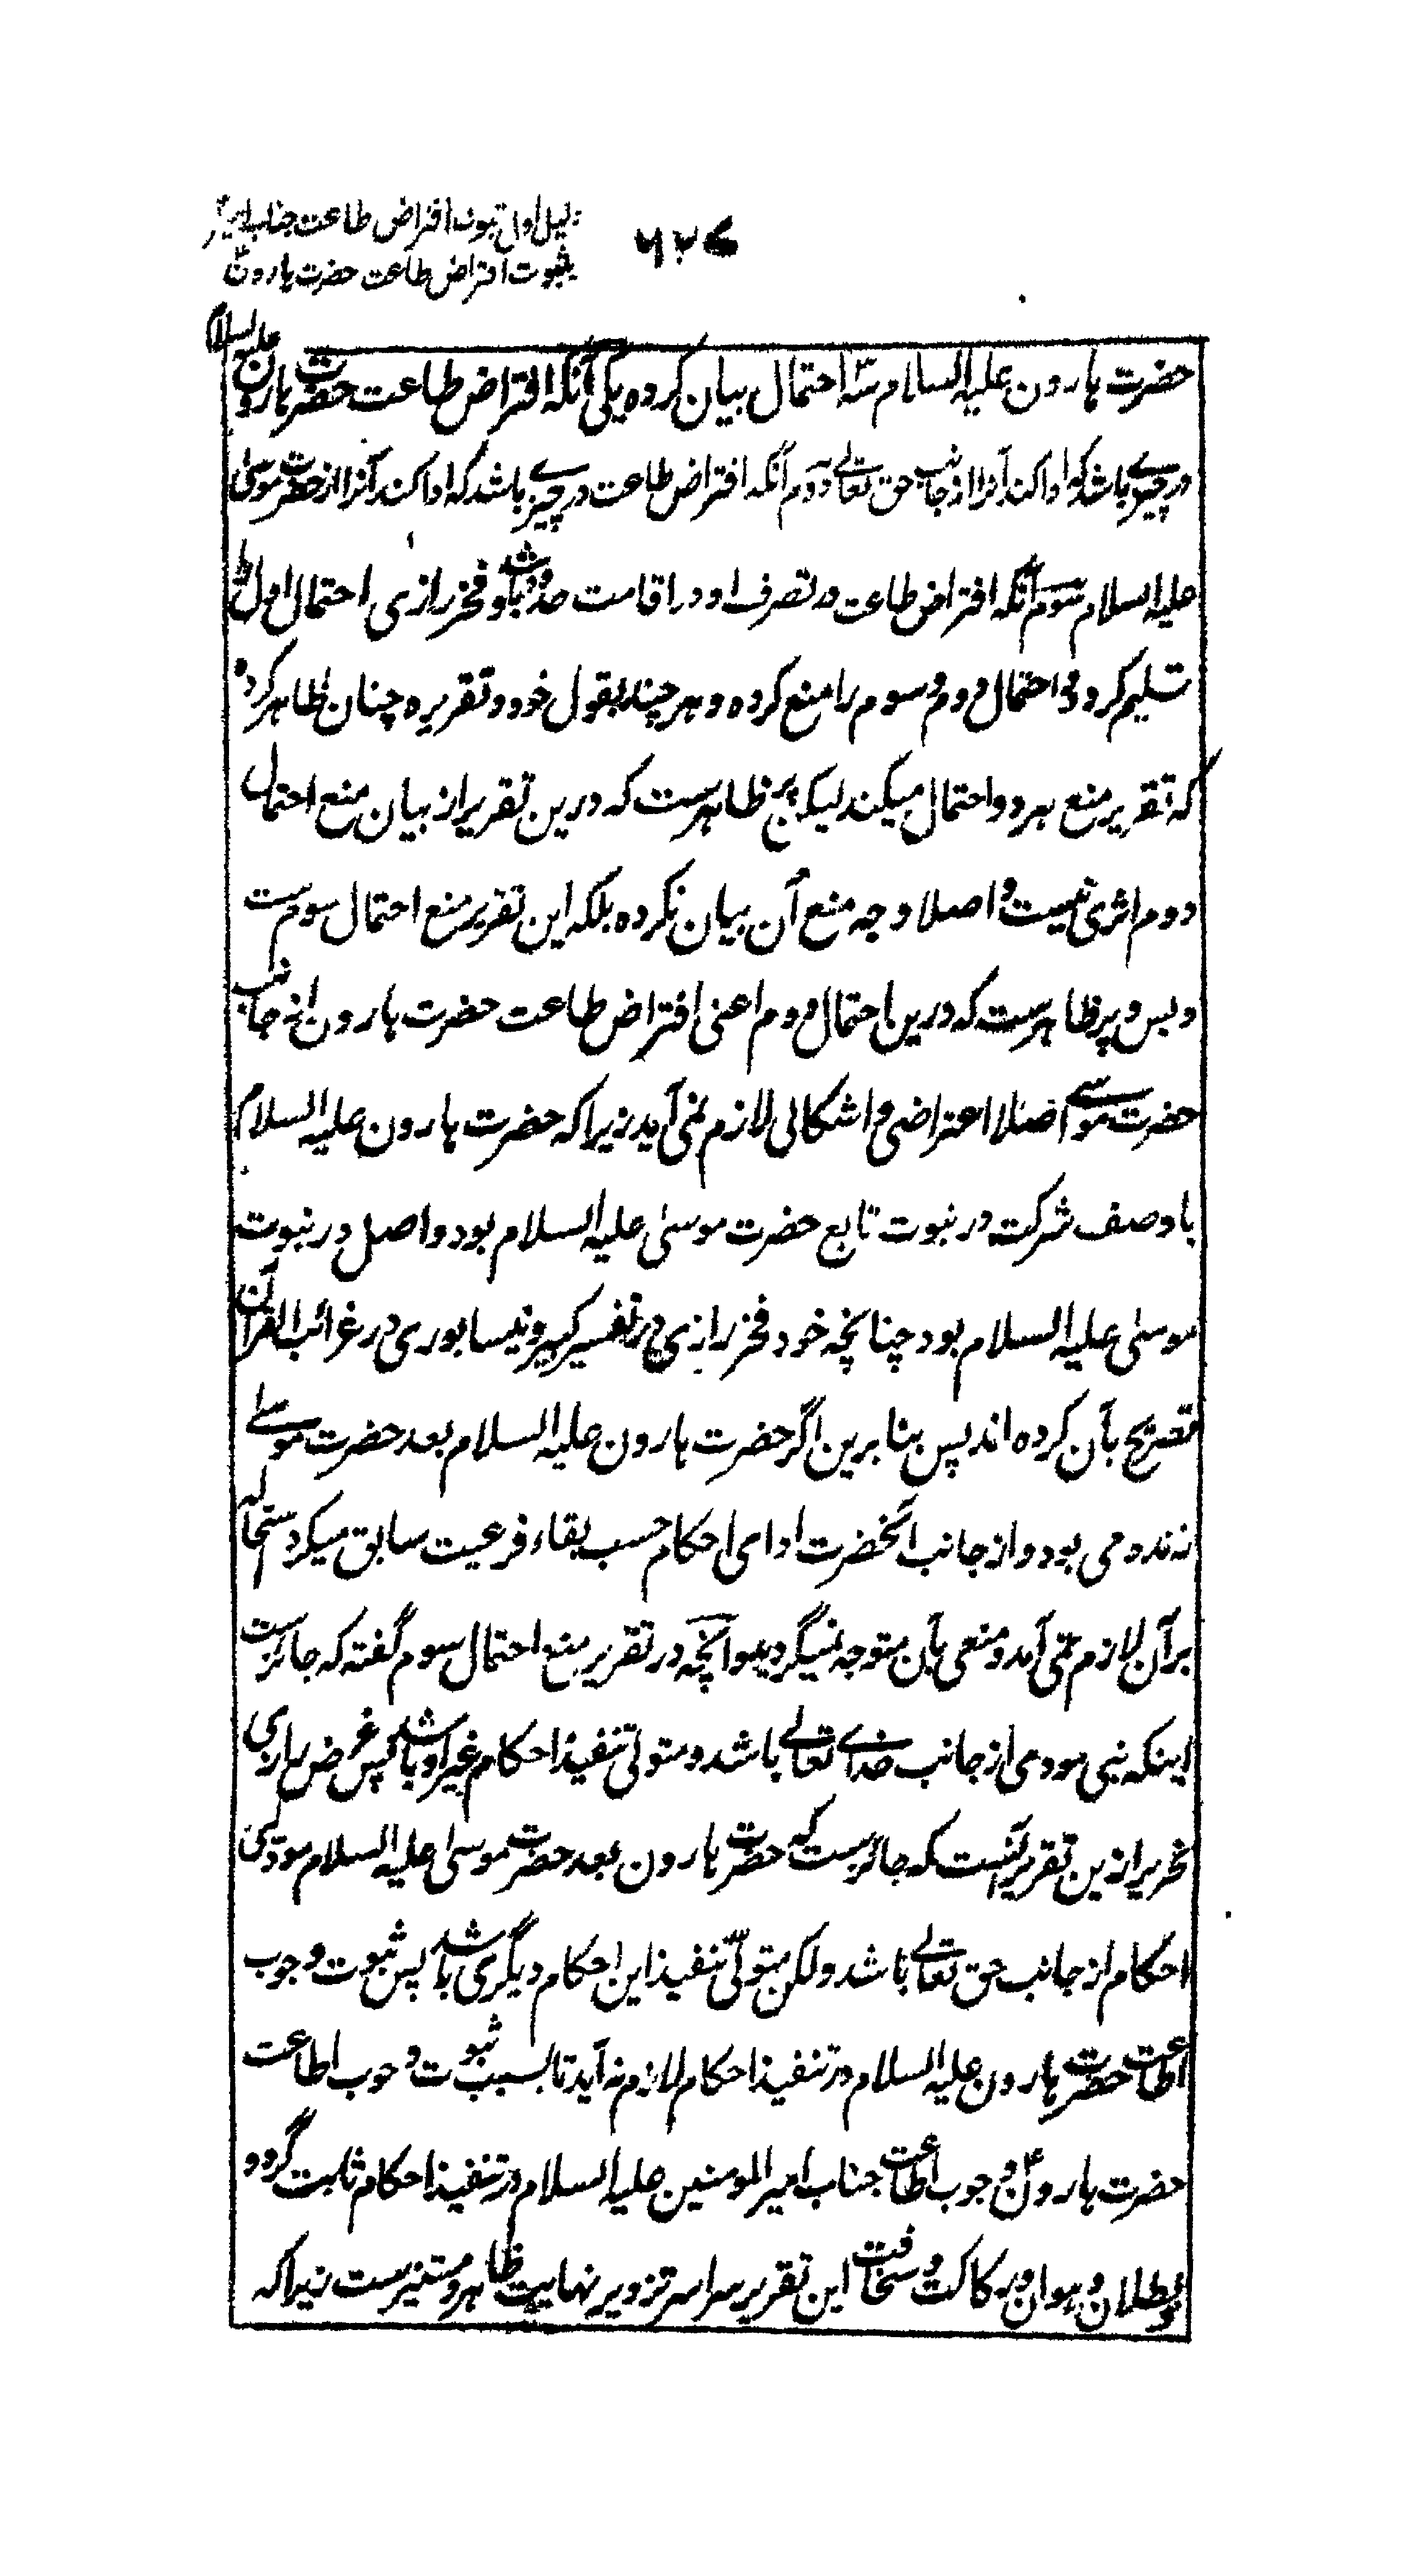 دلیل اول ثبوت افتراض طاعت جناب امیرؑ
بثبوت افتراض طاعت حضرت هارونؑ
۶۲۷
حضرت هارون علیه السلام سه احتمال بیان کرده یکی آنکه افتراض طاعت حضرت هارون علیه السلام
در چیزے باشد که ادا کند آنرا از جانب حق تعالے دوم آنکه افتراض طاعت در چیزے باشد که ادا کند آنرا از حضرت موسیٰ
علیه السلام سوم آنکه افتراض طاعت در تصرف او در اقامت حدود باشد و فخر رازی احتمال اول را
تسلیم کرده و احتمال دوم و سوم را منع کرده و هر چند بقول خود و تقریره چنان ظاهر کرده
که تقریر منع هر دو احتمال میکند لیکن پر ظاهرست که درین تقریر از بیان منع احتمال
دوم اثری نیست و اصلا وجه منع آن بیان نکرده بلکه این تقریر منع احتمال سوم ست
و بس و پر ظاهرست که درین احتمال دوم اعنی افتراض طاعت حضرت هارون از جانب
حضرت موسے اصلا اعتراضی و اشکالی لازم نمی آید زیرا که حضرت هارون علیه السلام
با وصف شرکت در نبوت تابع حضرت موسیٰ علیه السلام بود و اصل در نبوت
موسیٰ علیه السلام بود چنانچه خود فخر رازی در تفسیر کبیر و نیسابوری در غرائب القرآن
تصریح بآن کرده اند پس بنا برین اگر حضرت هارون علیه السلام بعد حضرت موسے
زنده می بود و از جانب آنحضرت ادای احکام حسب بقاء فرعیت سابق میکرد استحاله
بر آن لازم نمی آمد و منعی بآن متوجه نمیگردید و آنچه در تقریر منع احتمال سوم گفته که جائزست
اینکه نبی مودی از جانب خداے تعالے باشد و متولی تنفیذ احکام غیر او باشد پس غرض رازی
نحریر ازین تقریر آنست که جائزست که حضرت هارون بعد حضرت موسیٰ علیه السلام مودی
احکام از جانب حق تعالے باشد و لکن متولی تنفیذ این احکام دیگری باشد پس ثبوت وجوب
اطاعت حضرت هارون علیه السلام در تنفیذ احکام لازم نه آید تا بسبب ثبوت وجوب اطاعت
حضرت هارونؑ وجوب اطاعت جناب امیر المومنین علیه السلام در تنفیذ احکام ثابت گردد و
بطلان و هوان و رکاکت و سخافت این تقریر سراسر تزویر نهایت ظاهر و مستنیرست زیرا که